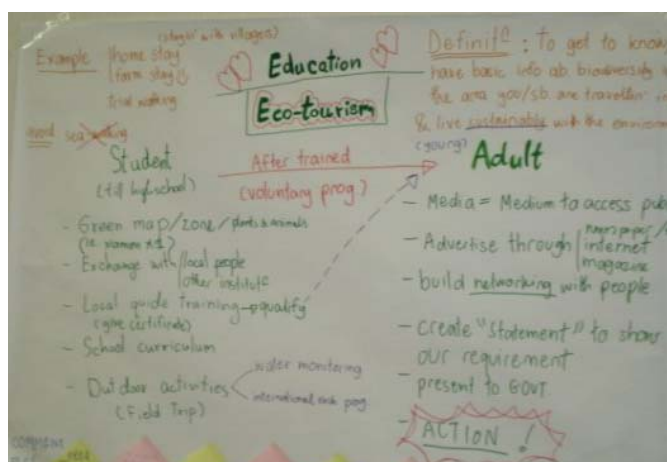 (stayin' with villagers)
Example
home stay
farm stay
trial walking
avoid sea walking
Education
Eco-tourism
Definit⁰: To get to know,
have basic info ab. biodiversity
the area you/sb. are travellin' in
& live sustainably with the environm
Student
(till high-school)
After trained
(voluntary prog.)
(young)
Adult
- Green map/zone/plants & animals
- Exchange with local people
other institute
- Local guide training → qualify
(give certificate)
- School curriculum
- Outdoor activities
(Field Trip)
water monitoring
- Media = Medium to access pub
- Advertise through
internet
magazine
- build networking with people
- create "Statement" to show
our requirement
- present to GOVT.
- ACTION!